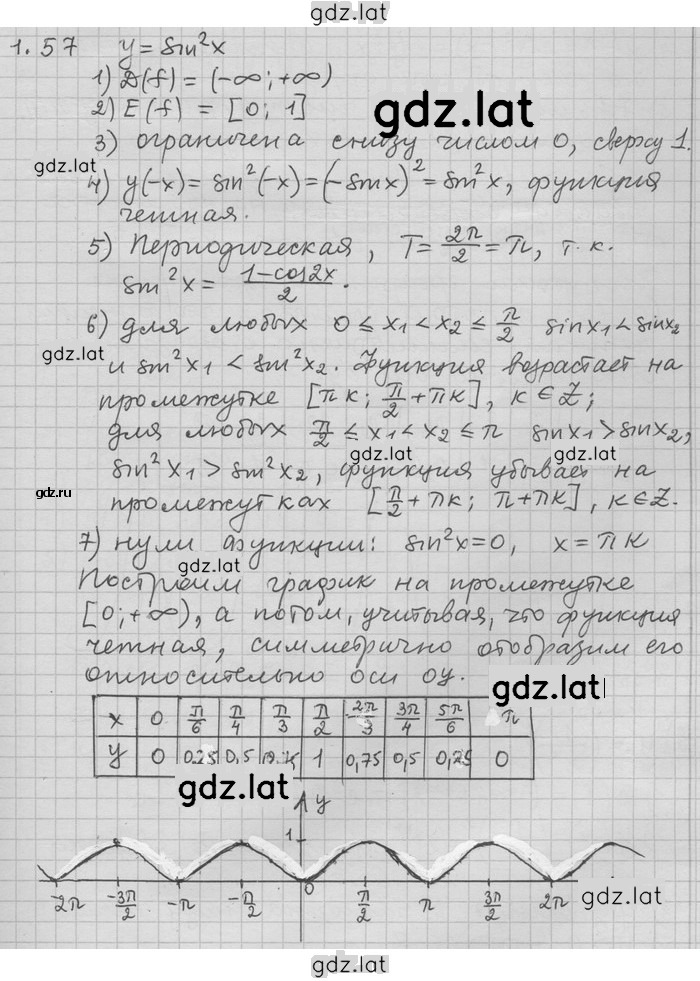 gdz.lat
1.57 y = sin²x
1) D(f) = (-∞; +∞)
2) E(f) = [0; 1]
gdz.lat
3) ограничена снизу числом 0, сверху 1.
gdz.lat
4) y(-x) = sin²(-x) = (-sinx)² = sin²x, функция
четная.
gdz.lat
5) Периодическая, T = 2π/2 = π, т.к.
sin²x = (1-cos2x)/2.
6) для любых 0 ≤ x₁ < x₂ ≤ π/2 sinx₁ < sinx₂
gdz.lat
и sin²x₁ < sin²x₂. Функция возрастает на
gdz.lat
промежутке [πk; π/2 + πk], k ∈ Z;
для любых π/2 ≤ x₁ < x₂ ≤ π sinx₁ > sinx₂,
gdz.lat
sin²x₁ > sin²x₂, функция убывает на
gdz.ru
промежутках [π/2 + πk; π + πk], k ∈ Z.
7) нули функции: sin²x = 0, x = πk
gdz.lat
Построим график на промежутке
[0; +∞), а потом, учитывая, что функция
gdz.lat
четная, симметрично отобразим его
относительно оси oy.
gdz.lat
x 0 π/6 π/4 π/3 π/2 2π/3 3π/4 5π/6 π
y 0 0.25 0,5 1 0,75 0,5 0,25 0
gdz.lat
y
1
0
-2π -3π/2 -π -π/2 π/2 π 3π/2 2π
gdz.lat
gdz.lat